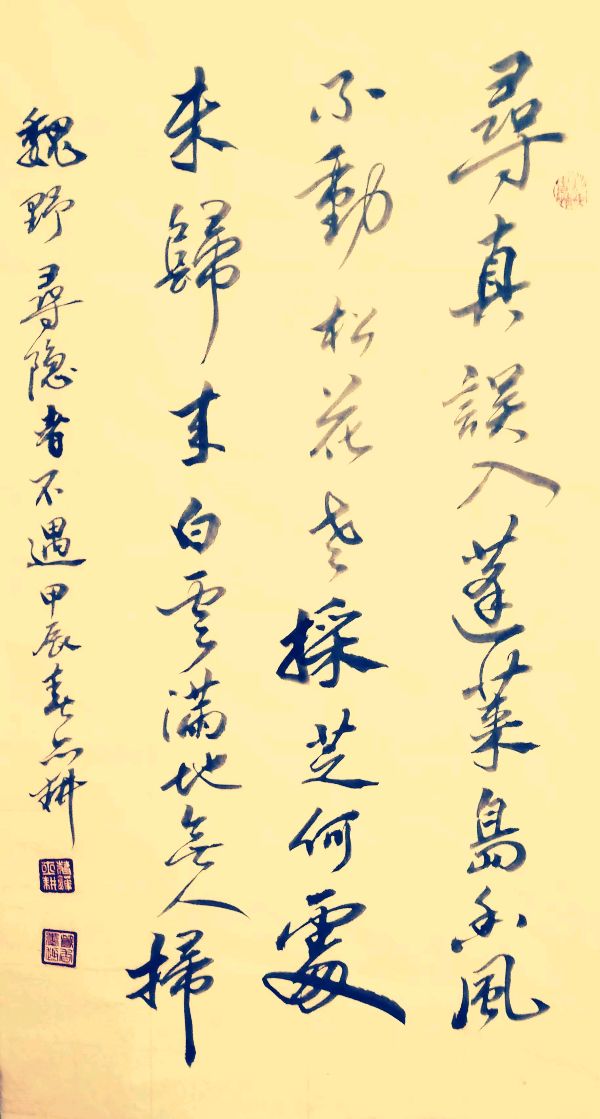 尋真誤入蓬萊島香風
不動松花老採芝何處
未歸來白雲滿地無人掃
魏野尋隐者不遇甲辰春耕